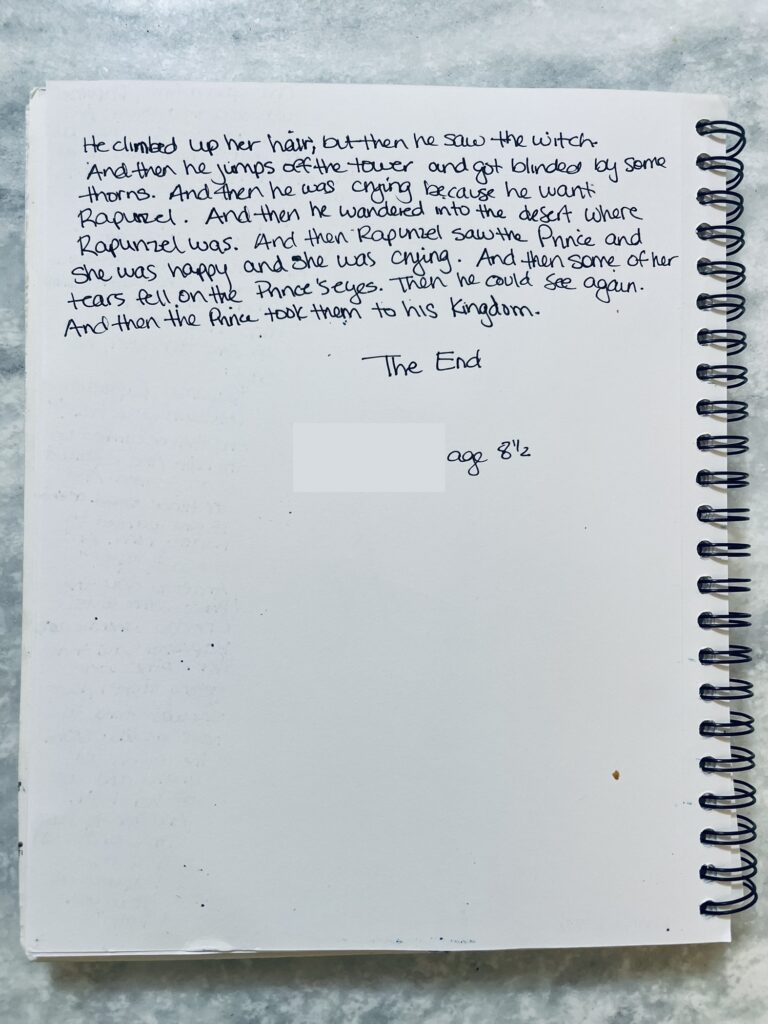 He climbed up her hair, but then he saw the witch.
And then he jumps off the tower and got blinded by some
thorns. And then he was crying because he want
Rapunzel. And then he wandered into the desert where
Rapunzel was. And then Rapunzel saw the Prince and
she was happy and she was crying. And then some of her
tears fell on the Prince's eyes. Then he could see again.
And then the Prince took them to his Kingdom.
The End
age 8½